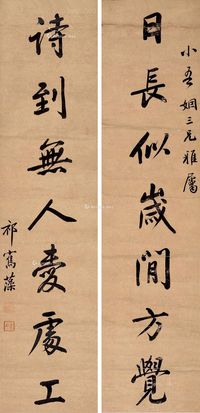 小吾姻三兄雅屬
日長似嵗閒方覺
詩到無人愛處工
祁寯藻